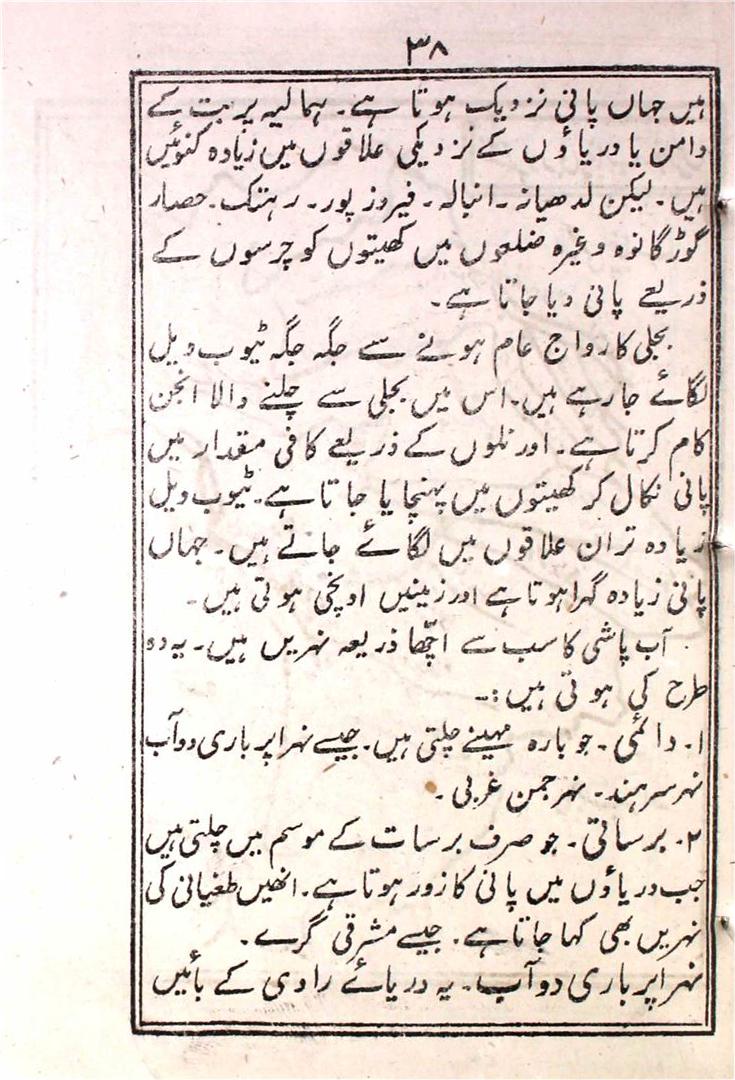 ۳۸
ہیں جہاں پانی نزدیک ہوتا ہے۔ ہمالیہ پربت کے
دامن یا دریاؤں کے نزدیکی علاقوں میں زیادہ کنوئیں
ہیں۔ لیکن لدھیانہ۔ انبالہ۔ فیروز پور۔ رہتک۔ حصار
گوڑگانوہ وغیرہ ضلعوں میں کھیتوں کو چرسوں کے
ذریعے پانی دیا جاتا ہے۔
بجلی کا رواج عام ہونے سے جگہ جگہ ٹیوب ویل
لگائے جا رہے ہیں۔ اس میں بجلی سے چلنے والا انجن
کام کرتا ہے۔ اور نلوں کے ذریعے کافی مقدار میں
پانی نکال کر کھیتوں میں پہنچایا جاتا ہے۔ ٹیوب ویل
زیادہ تر ان علاقوں میں لگائے جاتے ہیں۔ جہاں
پانی زیادہ گہرا ہوتا ہے اور زمینیں اونچی ہوتی ہیں۔
آب پاشی کا سب سے اچھا ذریعہ نہریں ہیں۔ یہ دو
طرح کی ہوتی ہیں:۔
۱۔ دائمی۔ جو بارہ مہینے چلتی ہیں۔ جیسے نہر اپر باری دوآب
نہر سرہند۔ نہر جمن غربی۔
۲۔ برساتی۔ جو صرف برسات کے موسم میں چلتی ہیں
جب دریاؤں میں پانی کا زور ہوتا ہے۔ انھیں طغیانی کی
نہریں بھی کہا جاتا ہے۔ جیسے مشرقی گرے۔
نہر اپر باری دوآب۔ یہ دریائے راوی کے بائیں